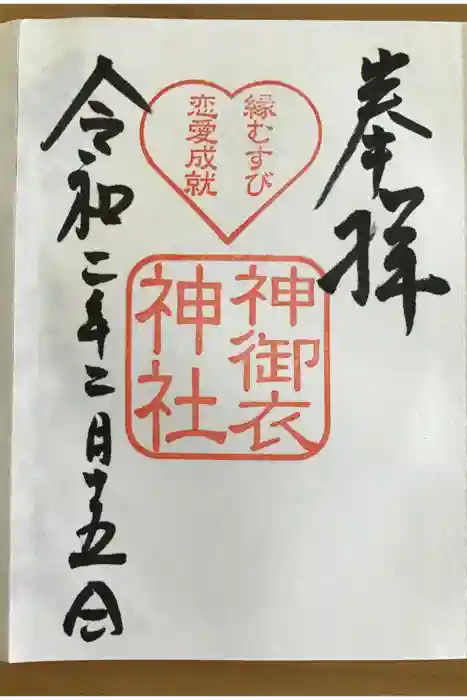 奉拝
縁むすび
恋愛成就
神御衣
神社
令和二年二月十五日